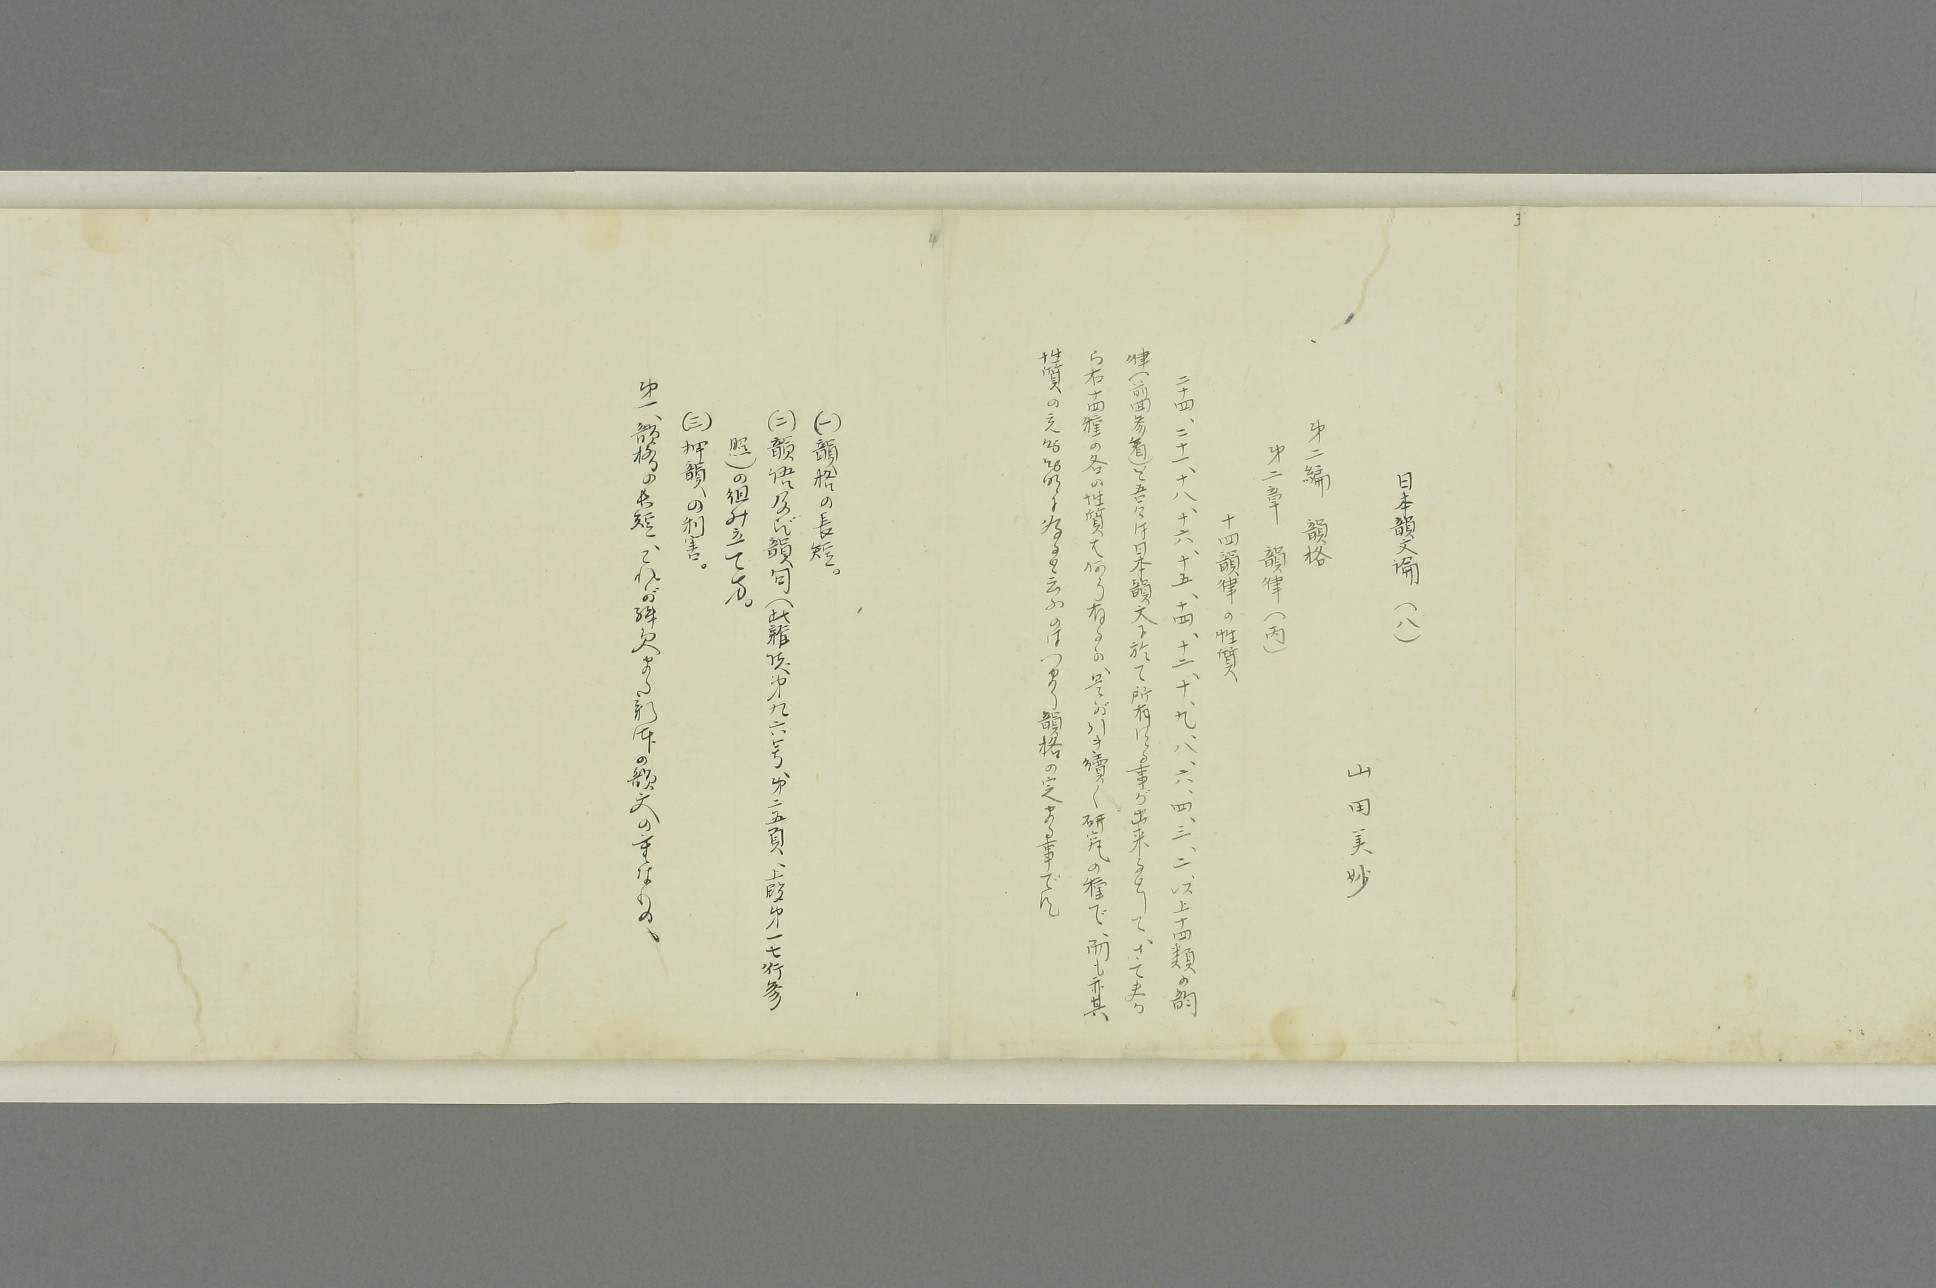 3
日本韻文論（八）
山田美妙
第二編　韻格
第二章　韻律（丙）
十四韻律の性質
二十四、二十一、十八、十六、十五、十四、十二、十、九、八、六、四、三、二、以上十四類の韵
律（前回参看）を吾々は日本韻文に於て所有する事が出来るとして、さて夫か
ら右十四種の各の性質は何う有るか、是が引き續く研究の種で、而も亦其
性質の充分分明に為ると云ふのはつまり韻格の定まる事です
4
（一）韻格の長短。
（二）韻語及び韻句（此雜誌第九六号第二五頁、上段第一七行参
照）の組み立て方。
（三）押韻の利害。
第一、韻格の長短、これが
の韻文の重なもの、